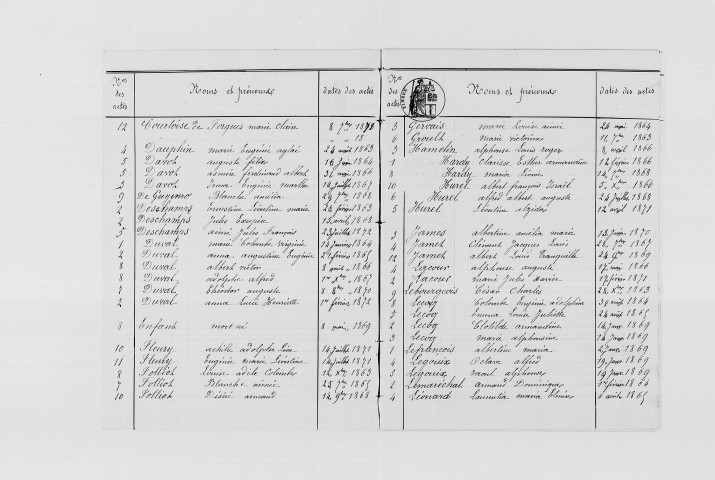 Nos des actes
Noms et prénoms
dates des actes
12 Courtoise de Forques marie
8 7bre 1873
4 Dauphin marie Eugénie aglaé 24 août 1863
5 Davot auguste 16 Juin 1864
5 Davot ferdinand albert 31 mai 1866
2 Davot Eugénie marthe Juillet 1867
9 De Guyenro Blanche amélia 29 7bre 1868
2 Deschamps Ernestine Léontine marie 26 février 1863
2 Deschamps Jules 15 avril 1868
5 Deschamps aimé Jules François 23 Juillet 1872
1 Duval marie Colombe virginie 14 Janvier 1864
2 Duval anna augustine Eugénie 2 février 1865
8 Duval albert victor 8 août 1866
8 Duval adolphe alfred 1er 1867
1 Duval Théodor auguste 8 1870
2 Duval anna Lucie Henriette 1er février 1872
8 Enfant mort né 8 mai 1869
10 Fleury achille adolphe 14 Juillet 1871
11 Fleury Eugénie marie Léontine 14 Juillet 1871
8 Folliot Louise adèle Colombe 12 Xbre 1863
7 Folliot Blanche aimée 25 7bre 1865
10 Folliot Désiré armand 14 9bre 1868
Nos des actes
Noms et prénoms
dates des actes
5 Gervais marie Louise aimée 24 mai 1864
6 Groult marie victorine 11 7bre 1863
3 Hamelin alphonse Louis roger 8 août 1866
1 Hardy Clarisse Esther armandine 12 février 1866
8 Hardy marie 14 7bre 1868
10 Hurel albert françois 5 Xbre 1866
6 Hurel alfred albert auguste 24 Juillet 1868
5 Hurel Léontine 12 avril 1871
3 James albertine amélia marie 13 Juin 1870
4 Jamet Clément Jacques Louis 28 7bre 1867
12 Jamet albert Louis Tranquille 24 9bre 1869
4 Lacour alphonse auguste 17 mai 1866
2 Lacour marie Jules 17 février 1871
9 Lebourgeois César Charles 28 Xbre 1863
8 Lecoq Colombe Eugénie adolphine 30 août 1864
5 Lecoq Emma Louise Juliette 24 août 1865
2 Lecoq Clotilde armandine 14 Janv 1869
3 Lecoq marie alphonsine 14 Janv 1869
1 Lefrançois albertine maria 2 Janv 1869
4 Legoux Octave alfred 19 Janv 1869
3 Legoux raoul alphonse 19 Janv 1869
2 Lemaréchal armand Dominique 1er février 1864
4 Léonard maria 6 août 1865